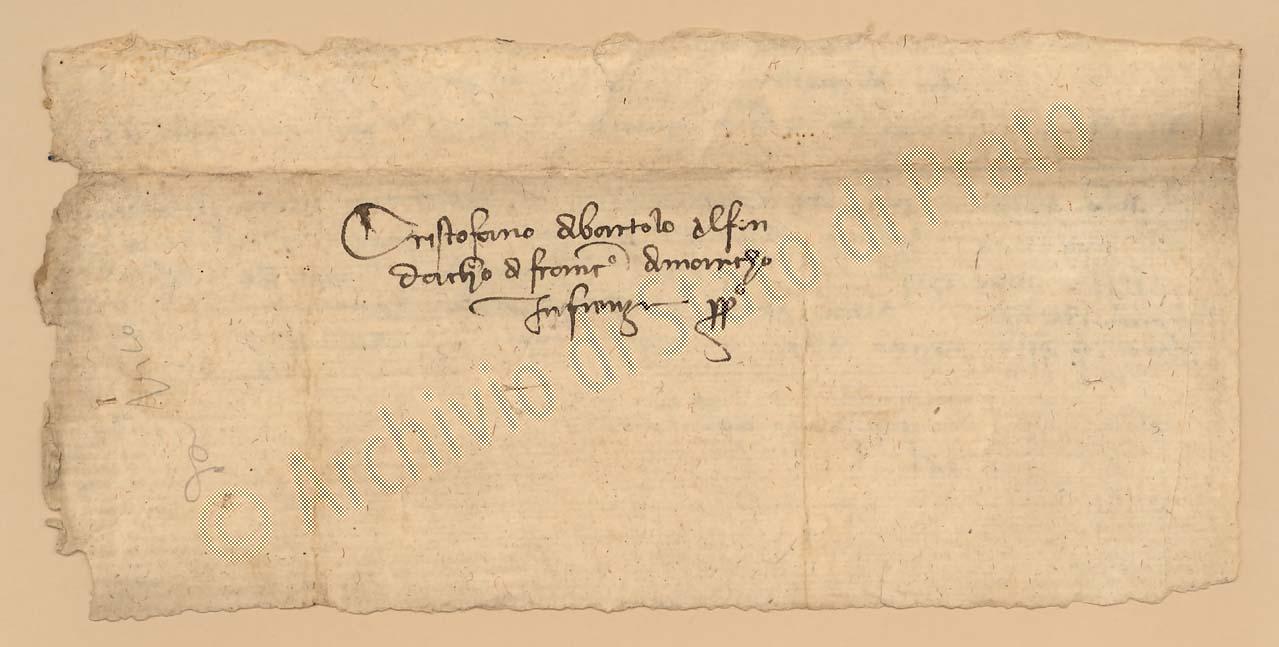 Cristofano di bartolo al fon
dacho di franc° di marcho
In firenze pp°
© Archivio di Stato di Prato